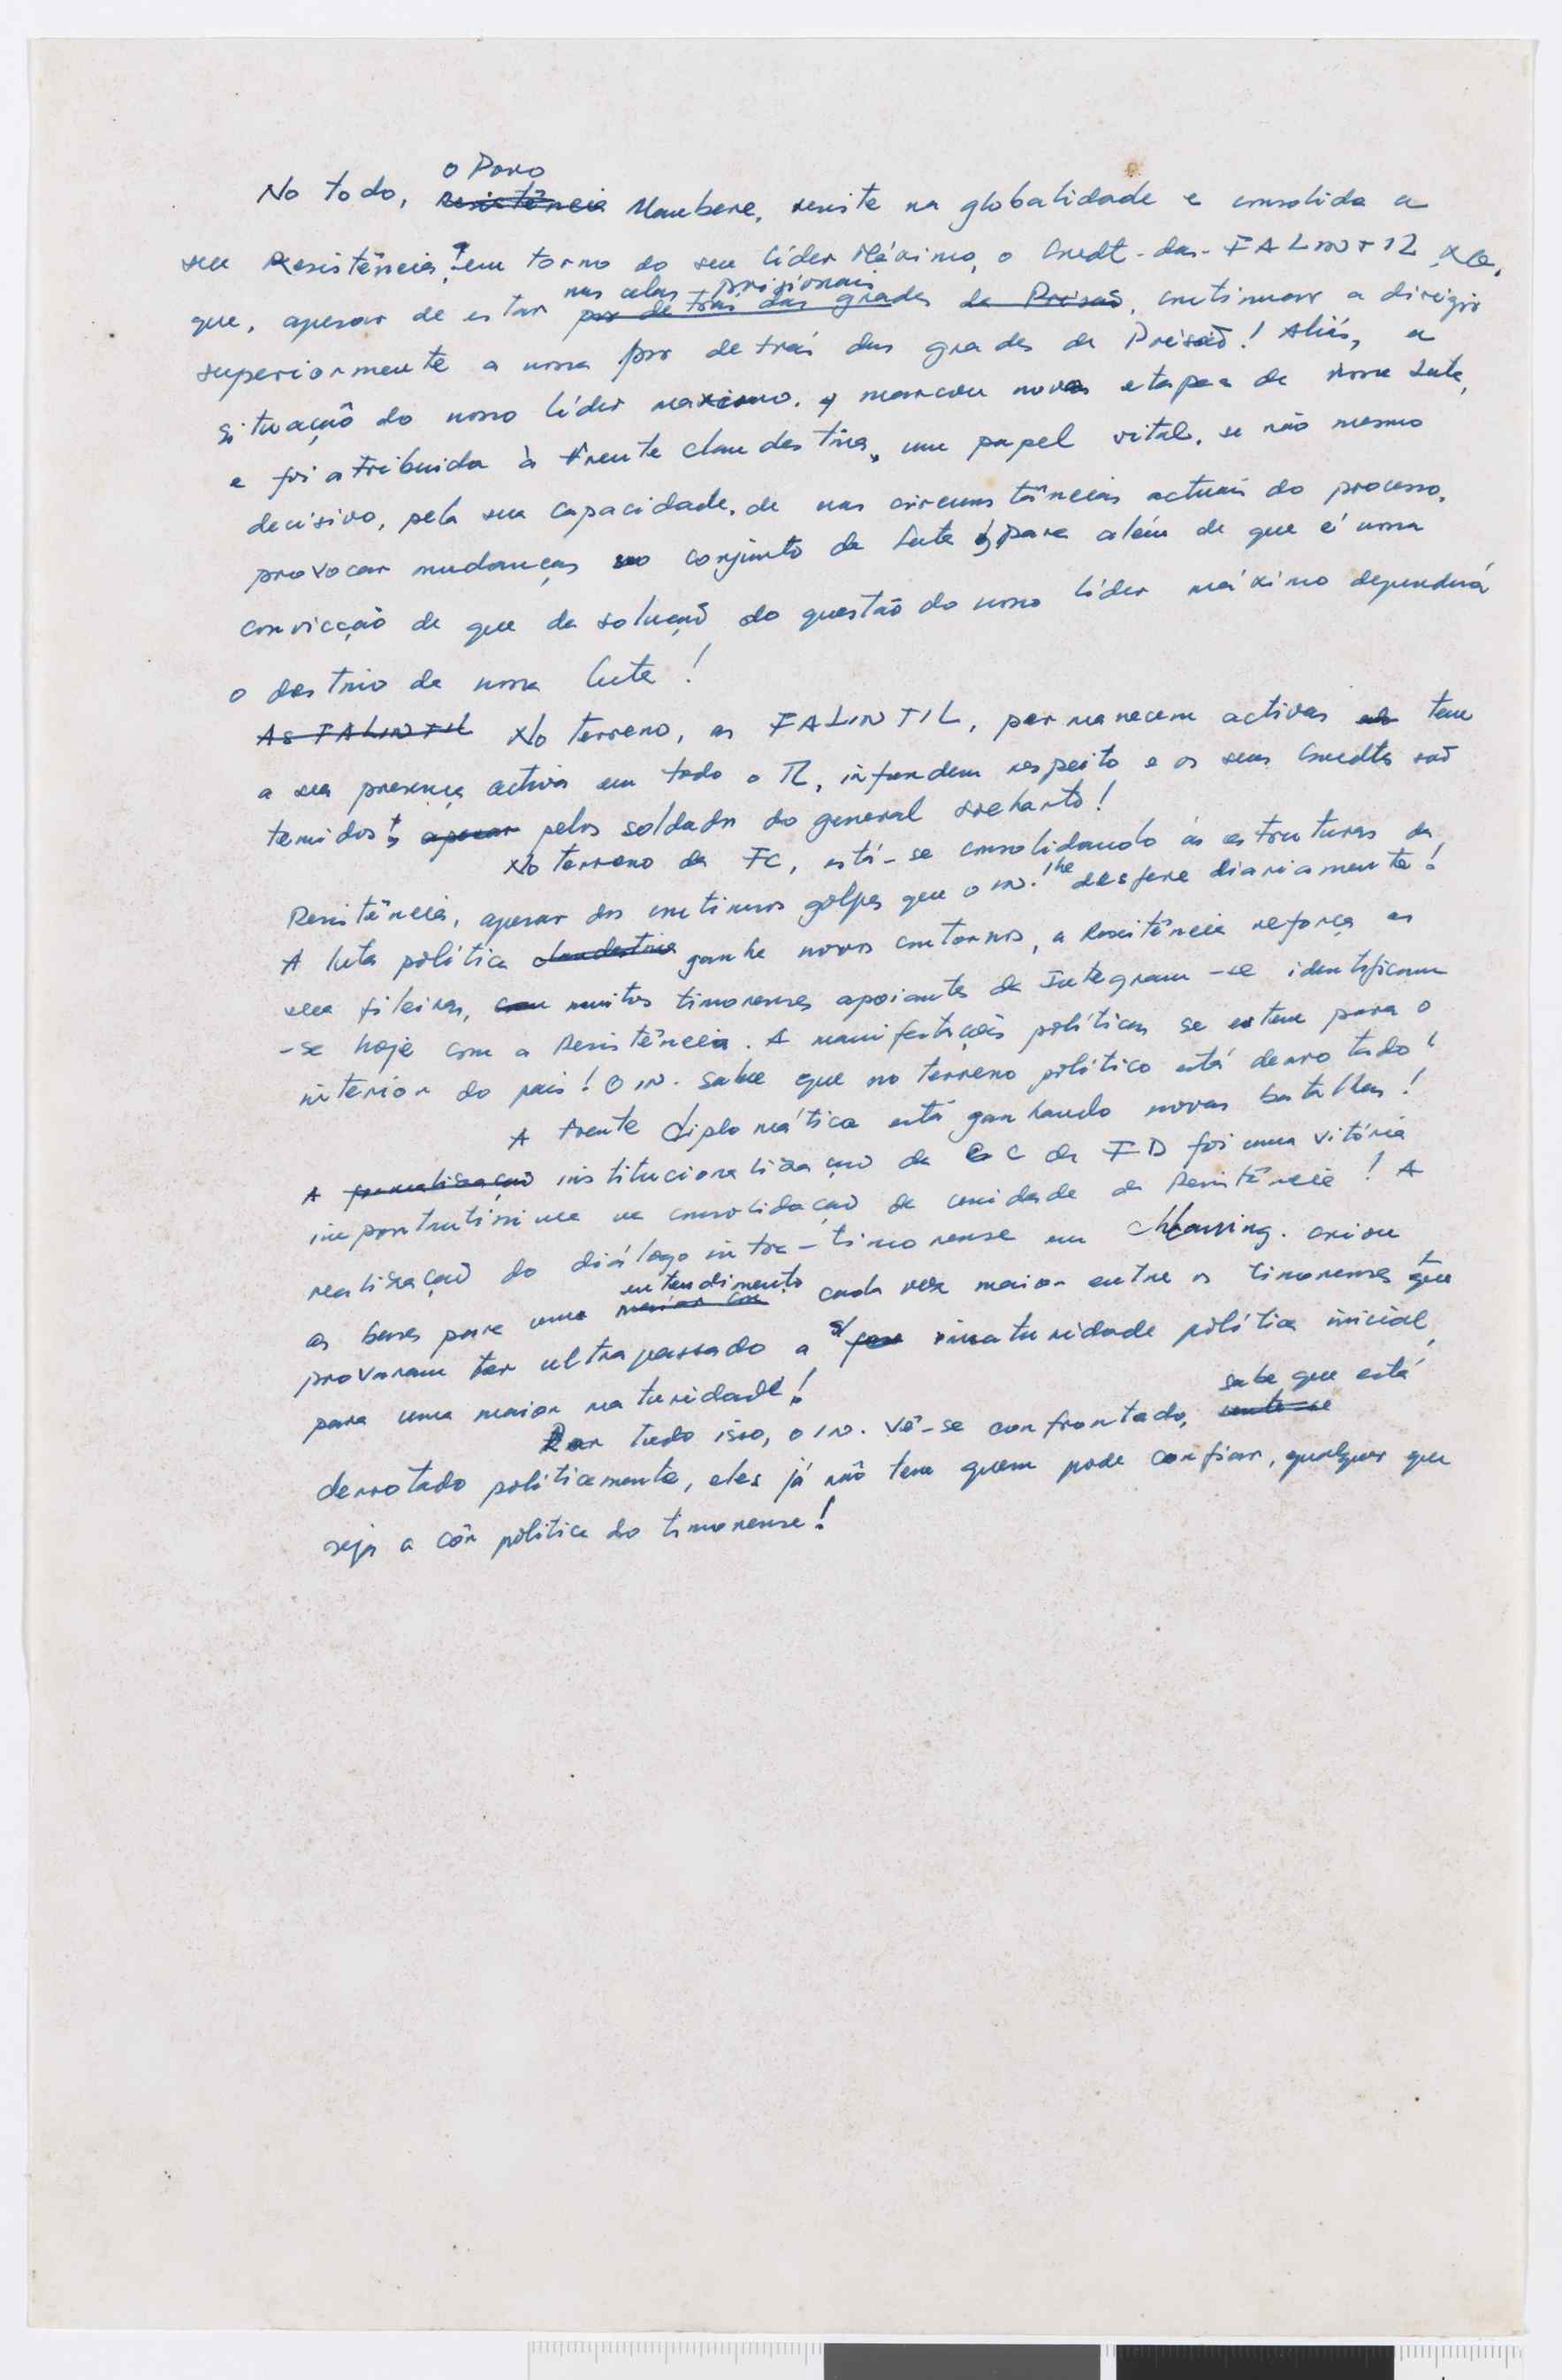 No todo, o Povo Resistência Maubere, resiste na globalidade e consolida a
sua Resistência, em torno do seu líder Máximo, o Cmdt. das FALINTIL XG,
que, apesar de estar nas celas prisionais por detrás das grades da Prisão, continuar a dirigir
superiormente a nossa por detrás das grades da Prisão! Aliás, a
situação do nosso líder maximo. marcou nova etapa da nossa Luta,
e foi atribuida à Frente clandestina, um papel vital, se não mesmo
decisivo, pela sua capacidade, de nas circunstâncias actuais do processo,
provocar mudanças no conjunto da Luta, para além de que é nossa
convicção de que da solução do questão do nosso líder máximo dependerá
o destino da nossa luta!
As FALINTIL No terreno, as FALINTIL, permanecem activas tem
a sua presença activa em todo o TL, infundem respeito e os seus Cmdts são
temidos apesar pelos soldados do general Suharto!
No terreno da FC, está-se consolidando as estruturas da
Resistência, apesar dos contínuos golpes que o in. lhe desfere diariamente!
A luta política clandestina ganha novos contornos, a Resistência reforça as
suas fileiras, com muitos timorenses apoiantes da Integram-se identificam
-se hoje com a Resistência. A manifestações políticas se estem para o
interior do país! O in. sabe que no terreno político está derrotado!
A Frente diplomática está ganhando novas batalhas!
A formalização institucionalização da CC da FD foi uma vitória
importantíssima na consolidação da unidade da Resistência! A
realização do diálogo intra-timorense em criou
as bases para uma entendimento maior cada vez maior entre os timorenses que
provaram ter ultrapassado a imaturidade política inicial,
para uma maior maturidade!
Por tudo isso, o in. vê-se confrontado, sabe que está sente-se
derrotado politicamente, eles já não tem quem pode confiar, qualquer que
seja a côr politica do timorense!